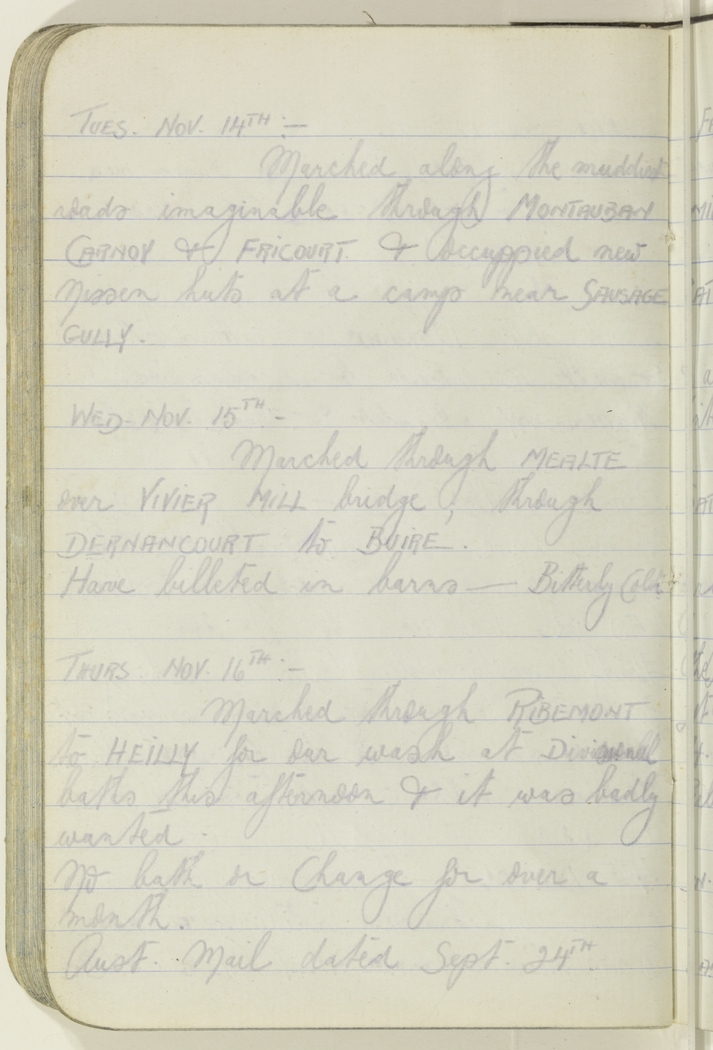 TUES. NOV. 14TH :—
Marched along the muddiest
roads imaginable through MONTAUBAN
CARNOY & FRICOURT. & occuppied new
Nissen huts at a camp near SAUSAGE
GULLY.
WED. NOV. 15TH -
Marched through MEALTE
over VIVIER MILL bridge, through
DERNANCOURT to BUIRE.
Have billeted in barns — Bitterly Cold
THURS NOV. 16TH :—
Marched through RIBEMONT
to HEILLY for our wash at Divisional
baths this afternoon & it was badly
wanted.
No bath or Change for over a
month.
Aust. Mail dated Sept. 24TH